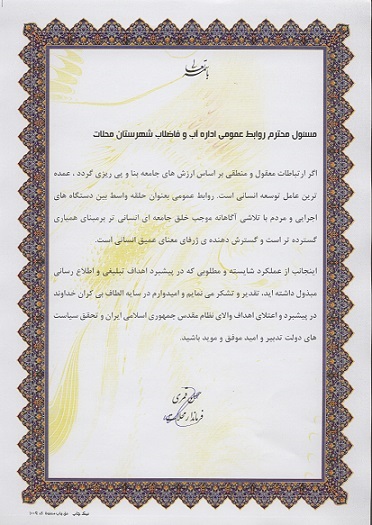 باسمه تعالی
مسئول محترم روابط عمومی اداره آب و فاضلاب شهرستان محلات
اگر ارتباطات معقول و منطقی بر اساس ارزش های جامعه بنا و پی ریزی گردد ، عمده
ترین عامل توسعه انسانی است. روابط عمومی بعنوان حلقه واسط بین دستگاه های
اجرایی و مردم با تلاشی آگاهانه موجب خلق جامعه ای انسانی تر برمبنای همیاری
گسترده تر است و گسترش دهنده ی ژرفای معنای عمیق انسانی است.
اینجانب از عملکرد شایسته و مطلوبی که در پیشبرد اهداف تبلیغی و اطلاع رسانی
مبذول داشته اید، تقدیر و تشکر می نمایم و امیدوارم در سایه الطاف بی کران خداوند
در پیشبرد و اعتلای اهداف والای نظام مقدس جمهوری اسلامی ایران و تحقق سیاست
های دولت تدبیر و امید موفق و موید باشید.
فرماندار محلات